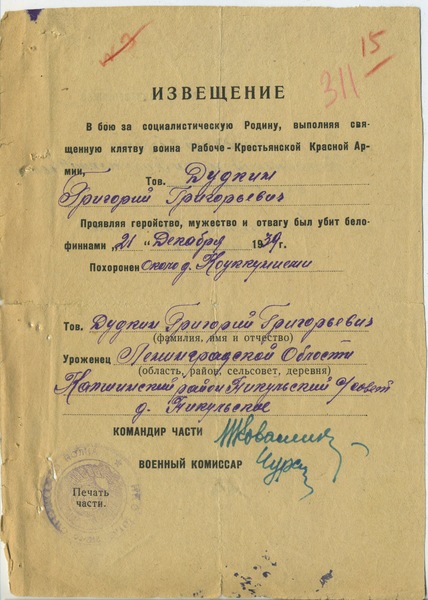 15
311
ИЗВЕЩЕНИЕ
В бою за социалистическую Родину, выполняя свя-
щенную клятву воина Рабоче-Крестьянской Красной Ар-
мии, Тов. Дудкин
Григорий Григорьевич
Проявляя геройство, мужество и отвагу был убит бело-
финнами „21" Декабря 1939г.
Похоронен около д.
Тов. Дудкин Григорий Григорьевич
(фамилия, имя и отчество)
Уроженец Ленинградской Области
(область, район, сельсовет, деревня)
район Никульский с/совет
д. Никульское
КОМАНДИР ЧАСТИ
ВОЕННЫЙ КОМИССАР
Печать
части.